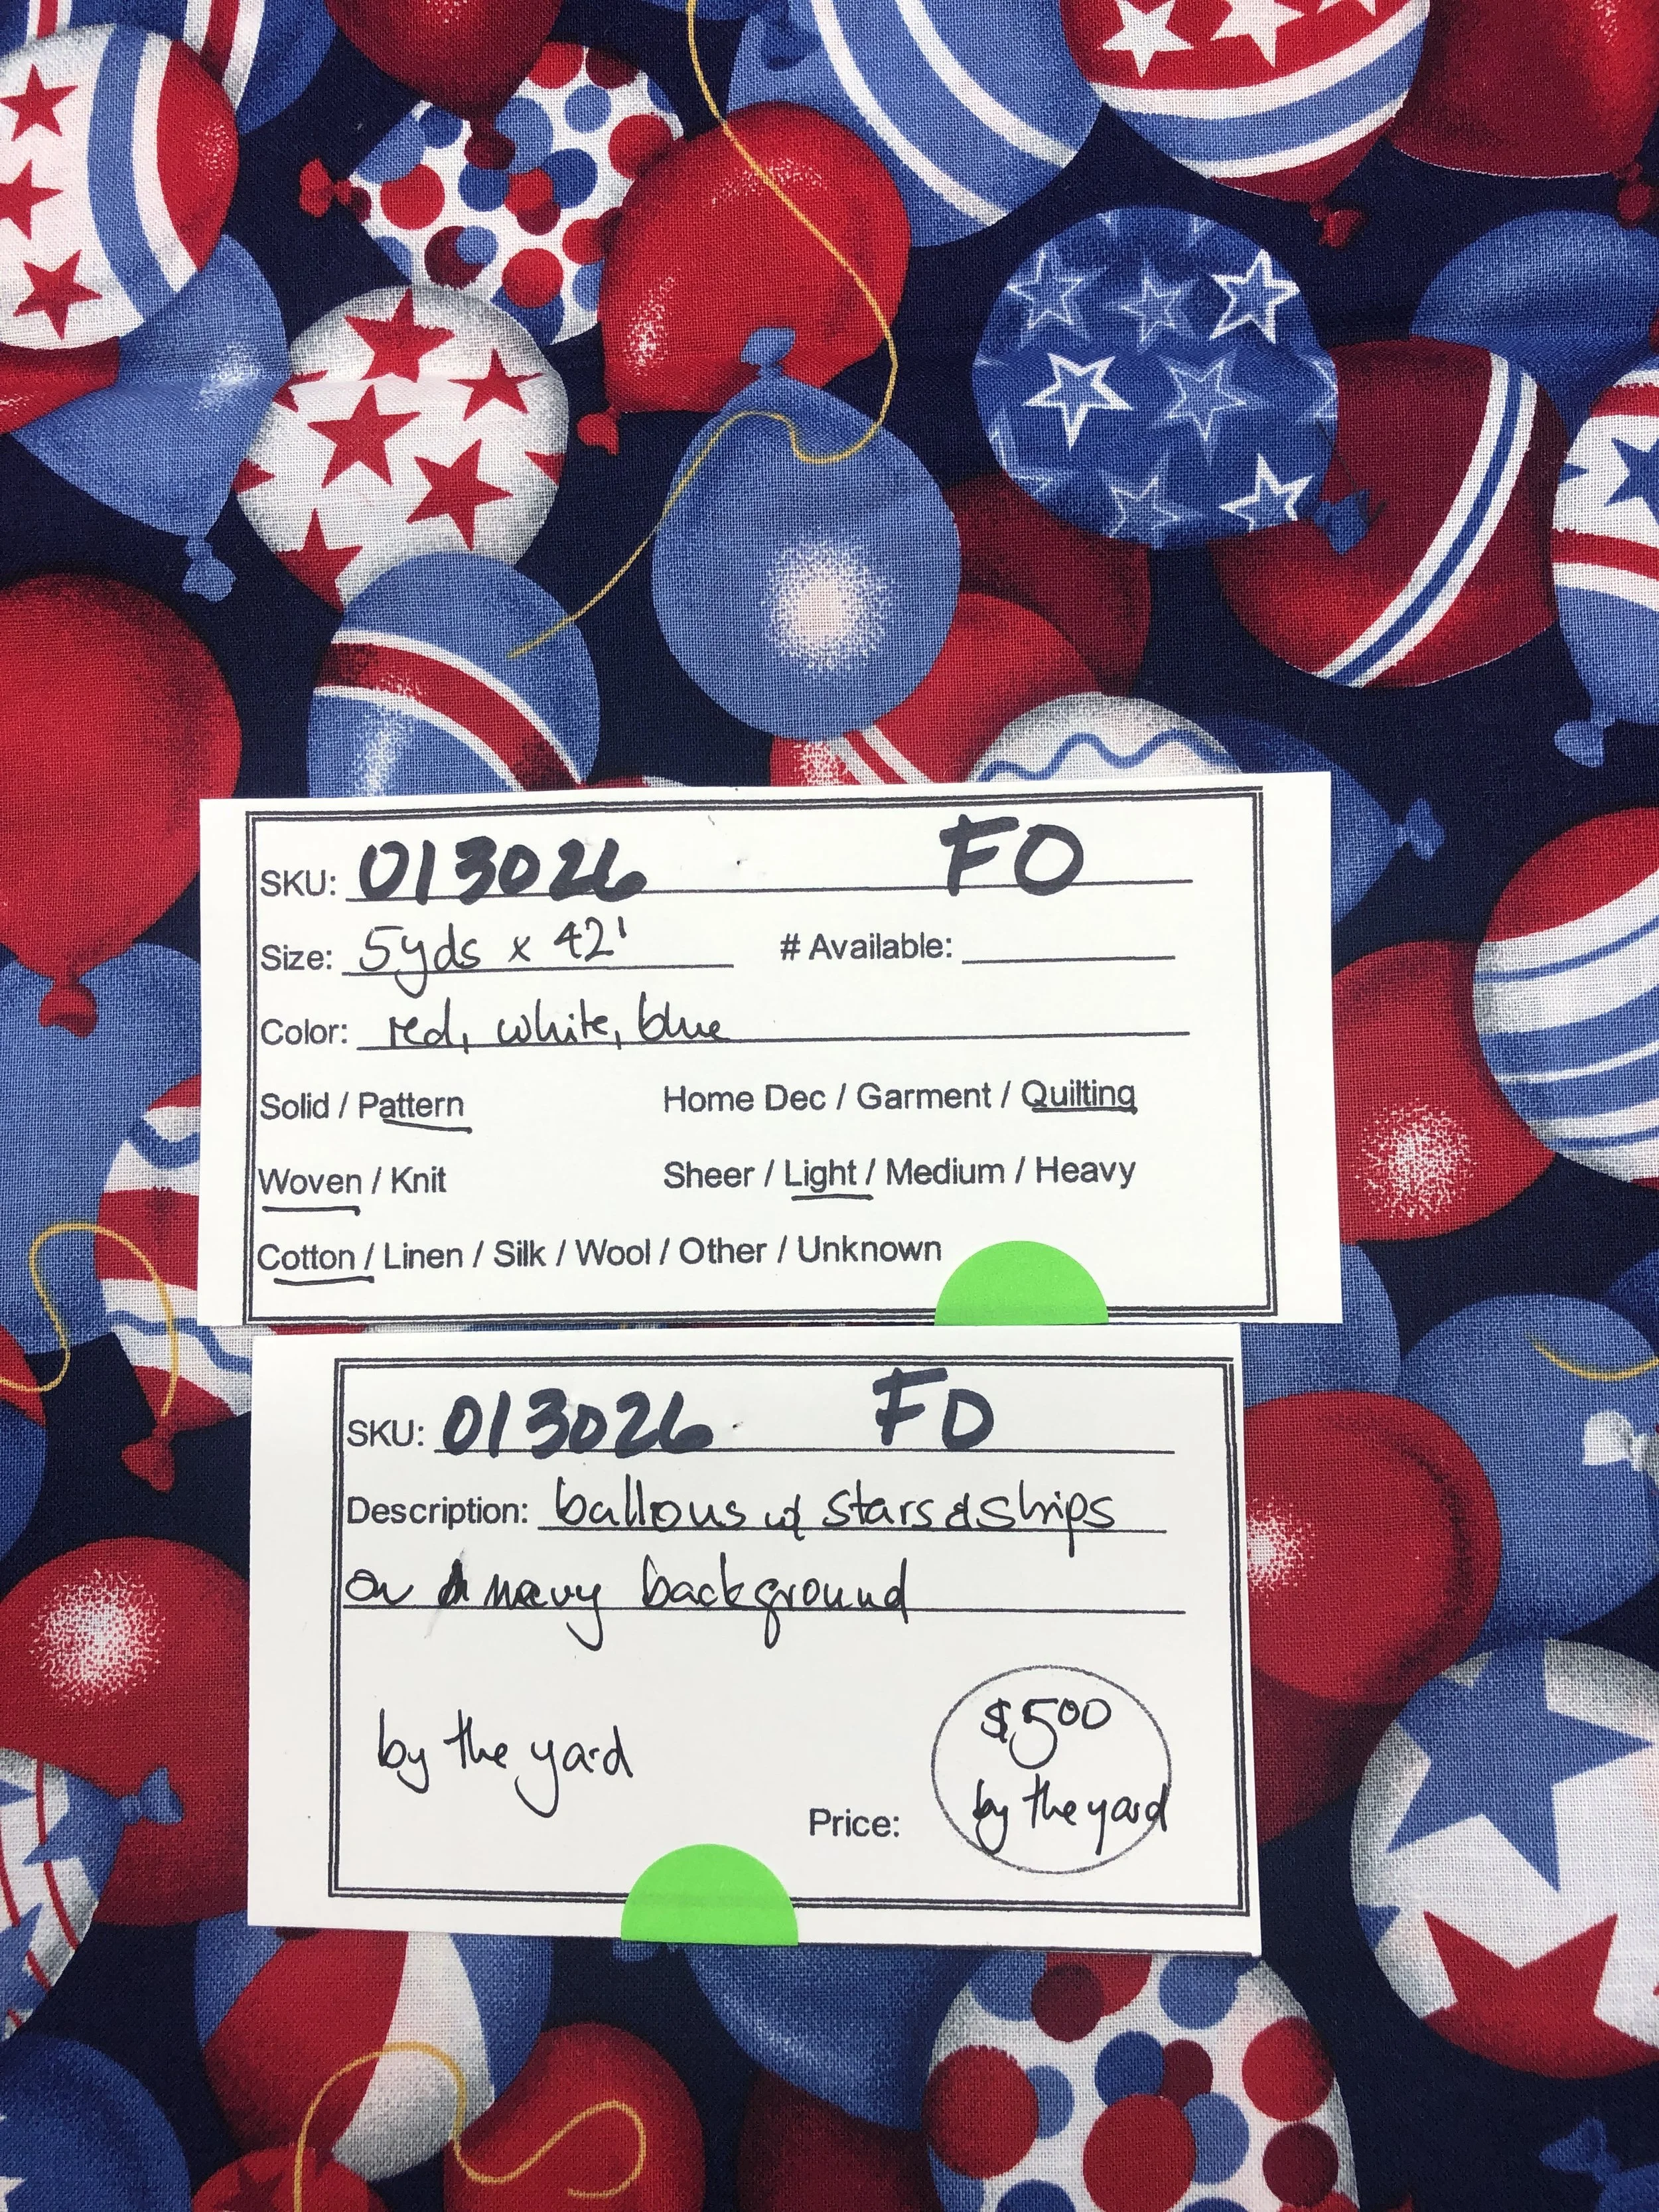 SKU: 013026 FO
Size: 5yds x 42' # Available:
Color: red, white, blue
Solid / Pattern Home Dec / Garment / Quilting
Woven / Knit Sheer / Light / Medium / Heavy
Cotton / Linen / Silk / Wool / Other / Unknown
SKU: 013026 FO
Description: ballous w/ stars & strips
on navy background
$500
by the yard
by the yard
Price: